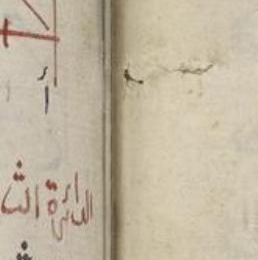 أ
الدائرة الثا